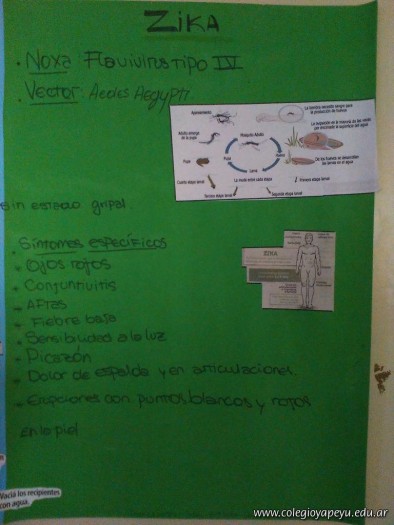 ZIKA
· Noxa Flavivirus tipo IV
· Vector: Aedes Aegypti.
Apareamiento
La hembra necesita sangre para la producción de huevos
Mosquito Adulto
Adulto emerge de la pupa
Pupa
Pupa
Huevo
Larva
De los huevos se desarrollan las larvas en el agua
Cuarta etapa larval
La muda entre cada etapa
Primera etapa larval
Tercera etapa larval
Segunda etapa larval
Sin estado gripal
Síntomas específicos
- Ojos rojos
- Conjuntivitis
- Aftas
- Fiebre baja
- Sensibilidad a la luz
- Picazón
- Dolor de espalda y en articulaciones.
- Erupciones con puntos blancos y rojos
en la piel
ZIKA
Vaciá los recipientes
con agua.
www.colegioyapeyu.edu.ar